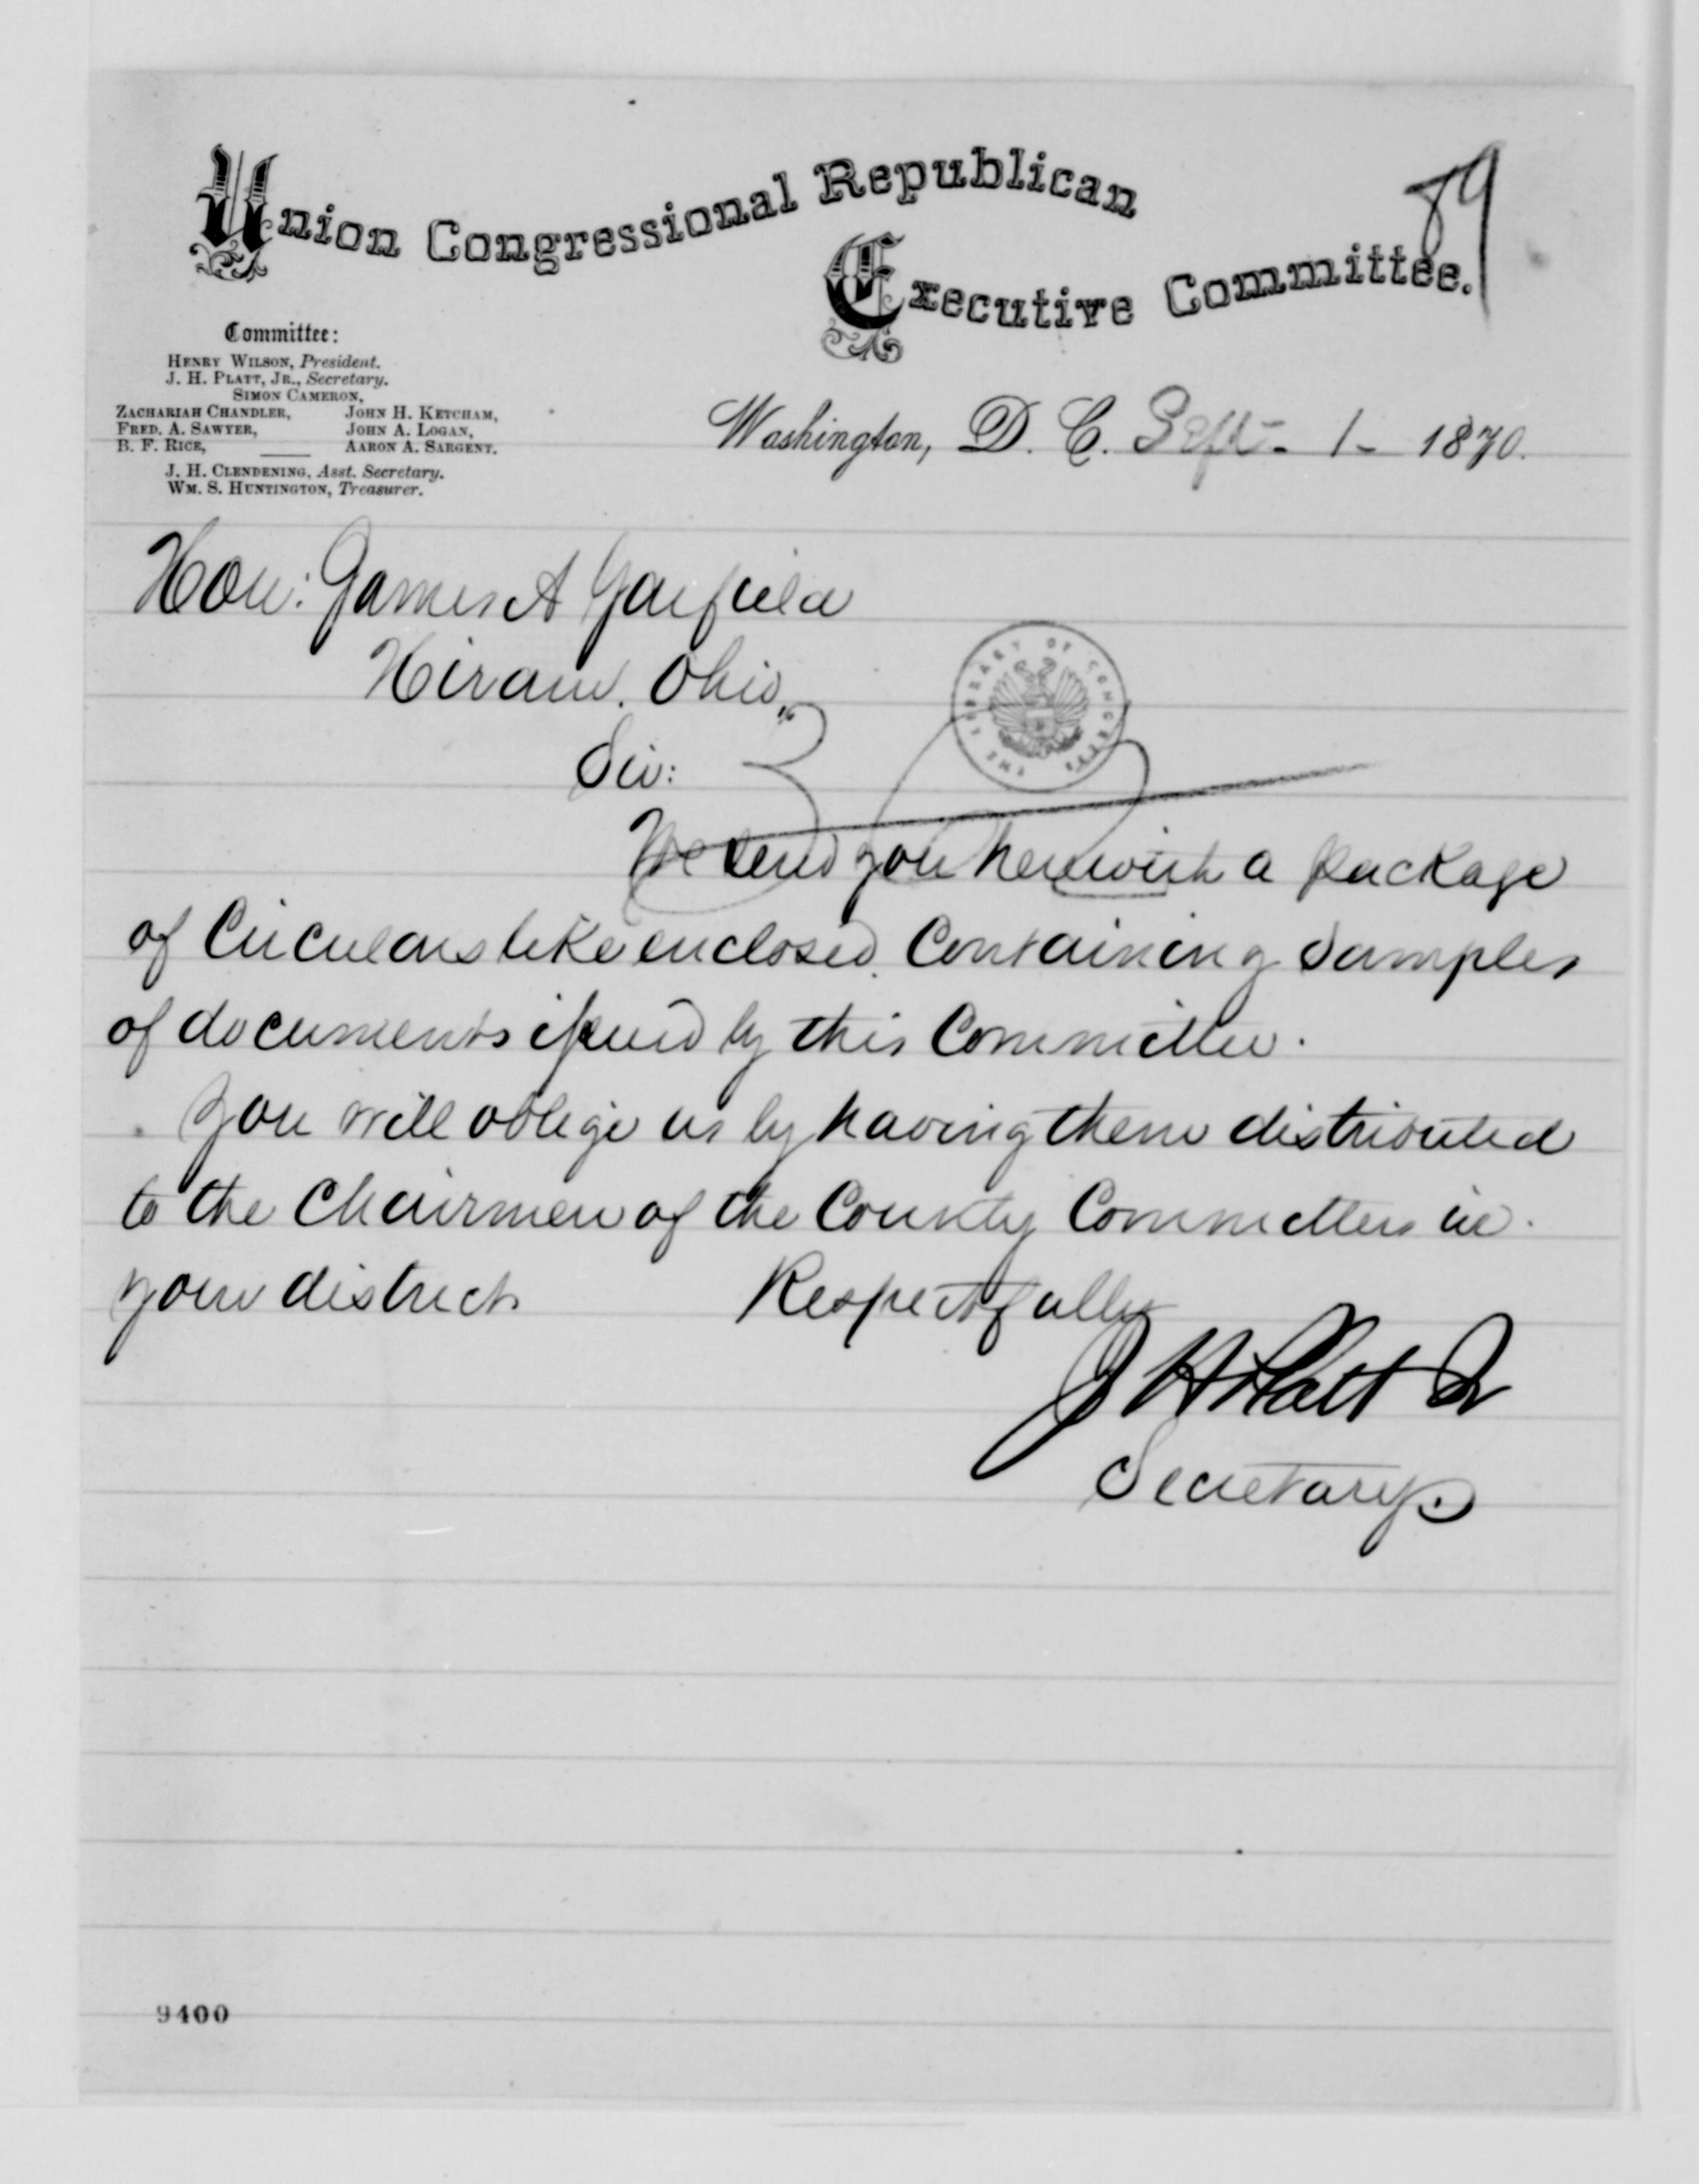 89
Union Congressional Republican
Executive Committee.
Committee:
Henry Wilson, President.
J. H. Platt, Jr., Secretary.
Simon Cameron,
Zachariah Chandler, John H. Ketcham,
Fred. A. Sawyer, John A. Logan,
B. F. Rice, Aaron A. Sargent.
J. H. Clendening, Asst. Secretary.
Wm. S. Huntington, Treasurer.
Washington, D. C. Sept - 1 - 1870.
Hon: James A Garfield
Hiram. Ohio,
Sir:
THE LIBRARY OF CONGRESS
We send you herewith a package
of Circulars like enclosed, Containing Samples
of documents issued by this Committee.
You will oblige us by having them distributed
to the Chairmen of the County Committees in
your district Respectfully
J H Platt Jr
Secretary
9400